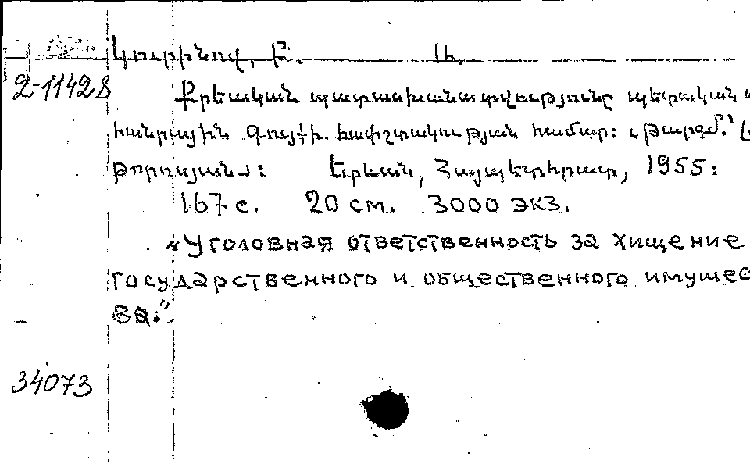 Կուրինով, Բ. Ա.
2-11428
Քրեական պատասխանատվությունը պետական
հանրային գույքի հափշտակության համար: Թարգմ.՝
Թորոսյանս: Երևան, Հայպետհրատ, 1955:
167 с. 20 см. 3000 экз.
"Уголовная ответственность за хищение
государственного и общественного имущес
ва."
34073